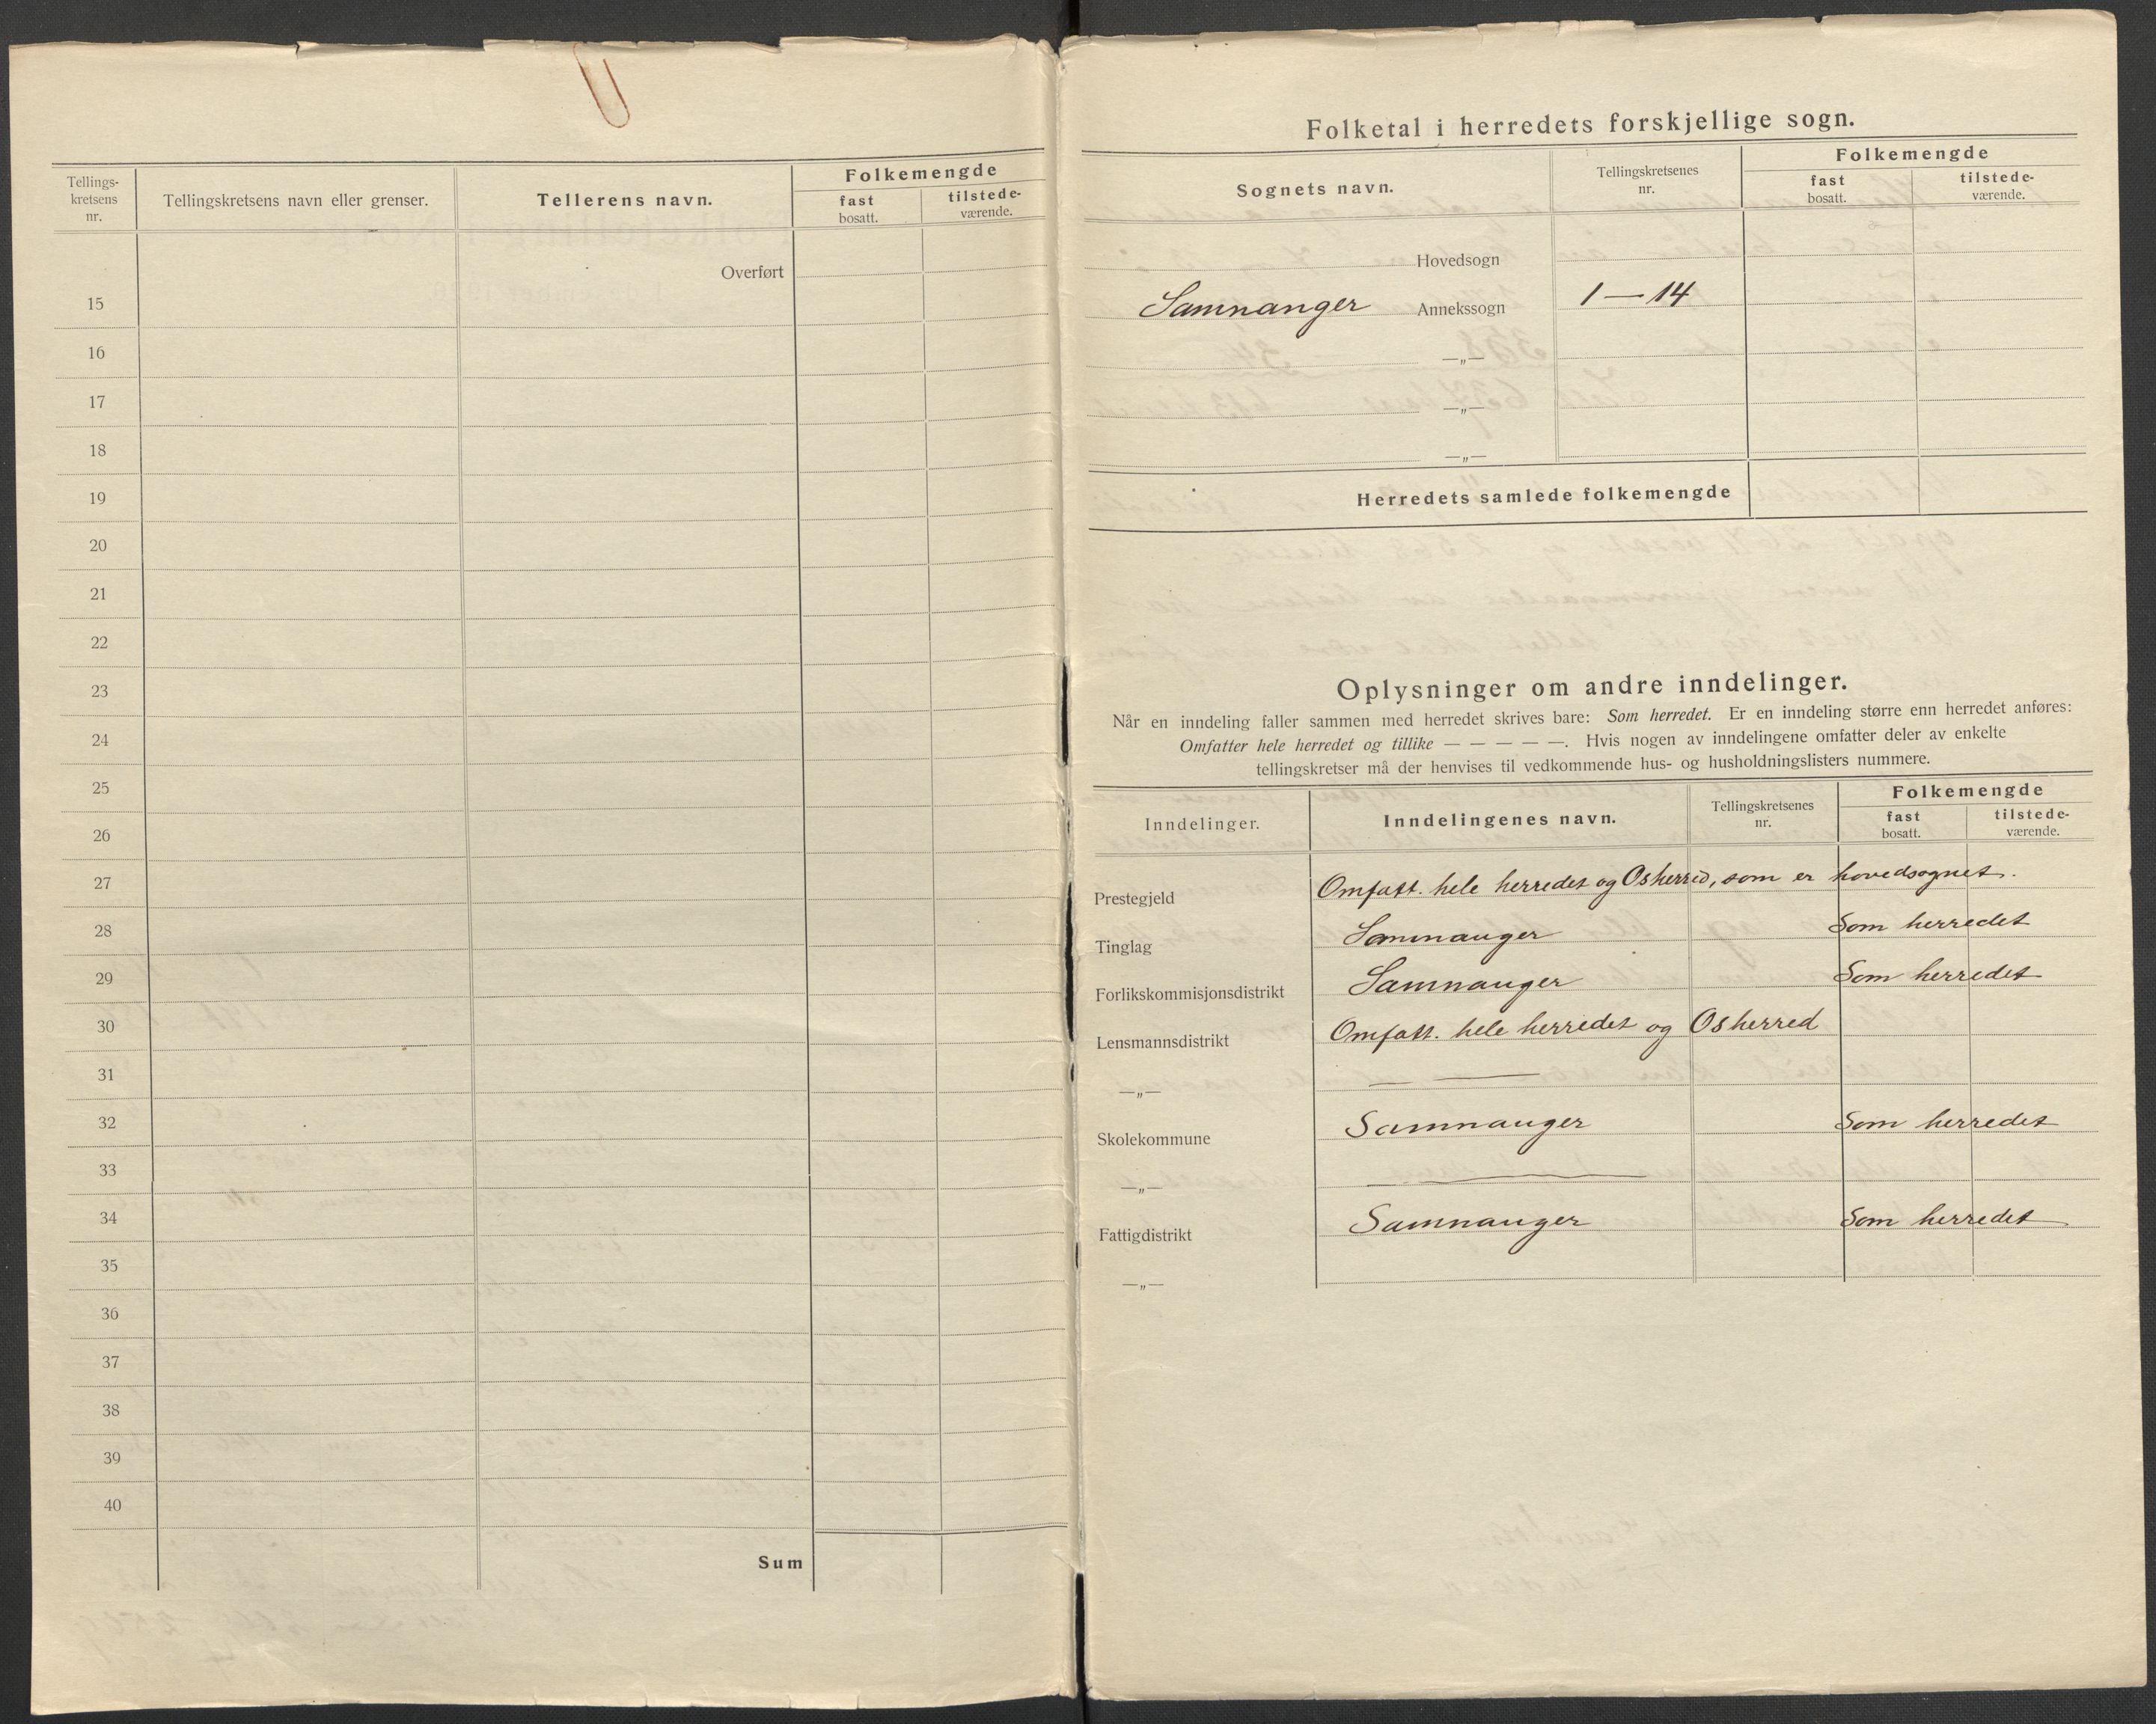 Tellings-
kretsens
nr.
Tellingskretsens navn eller grenser.
Tellerens navn.
Folkemengde
fast
bosatt.
tilstede-
værende.
Overført
15
16
17
18
19
20
21
22
23
24
25
26
27
28
29
30
31
32
33
34
35
36
37
38
39
40
Sum
Folketal i herredets forskjellige sogn.
Sognets navn.
Tellingskretsenes
nr.
Folkemengde
fast
bosatt.
tilstede-
værende.
Hovedsogn
Samnanger Annekssogn 1 — 14
—„—
—„—
—„—
Herredets samlede folkemengde
Oplysninger om andre inndelinger.
Når en inndeling faller sammen med herredet skrives bare: Som herredet. Er en inndeling større enn herredet anføres:
Omfatter hele herredet og tillike — — — — —. Hvis nogen av inndelingene omfatter deler av enkelte
tellingskretser må der henvises til vedkommende hus- og husholdningslisters nummere.
Inndelinger.
Inndelingenes navn.
Tellingskretsenes
nr.
Folkemengde
fast
bosatt.
tilstede-
værende.
Prestegjeld Omfatt. hele herredet og Osherred, som er hovedsognet.
Tinglag Samnanger Som herredet
Forlikskommisjonsdistrikt Samnanger Som herredet
Lensmannsdistrikt Omfatt. hele herredet og Osherred
—„— — —
Skolekommune Samnanger Som herredet
—„— —
Fattigdistrikt Samnanger Som herredet
—„—